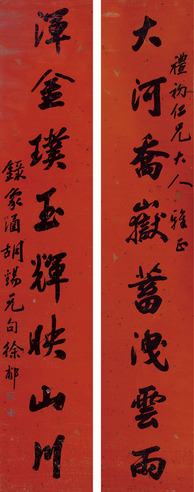 大河喬嶽蓄洩雲雨
禮初仁兄大人雅正
渾金璞玉輝映山川
錄象酒胡錫元句徐郙